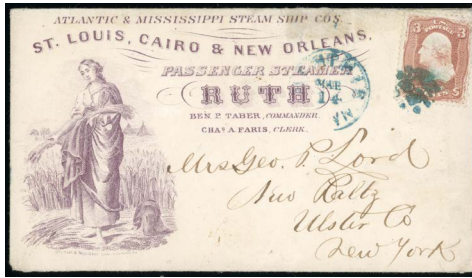 ATLANTIC & MISSISSIPPI STEAM SHIP COS
ST. LOUIS, CAIRO & NEW ORLEANS.
PASSENGER STEAMER
RUTH
BEN P. TABER, COMMANDER.
CHAS A. FARIS, CLERK.
MAR
14
MO
3 3
U S
Mrs Geo. P. Lord
New Paltz
Ulster Co
New York